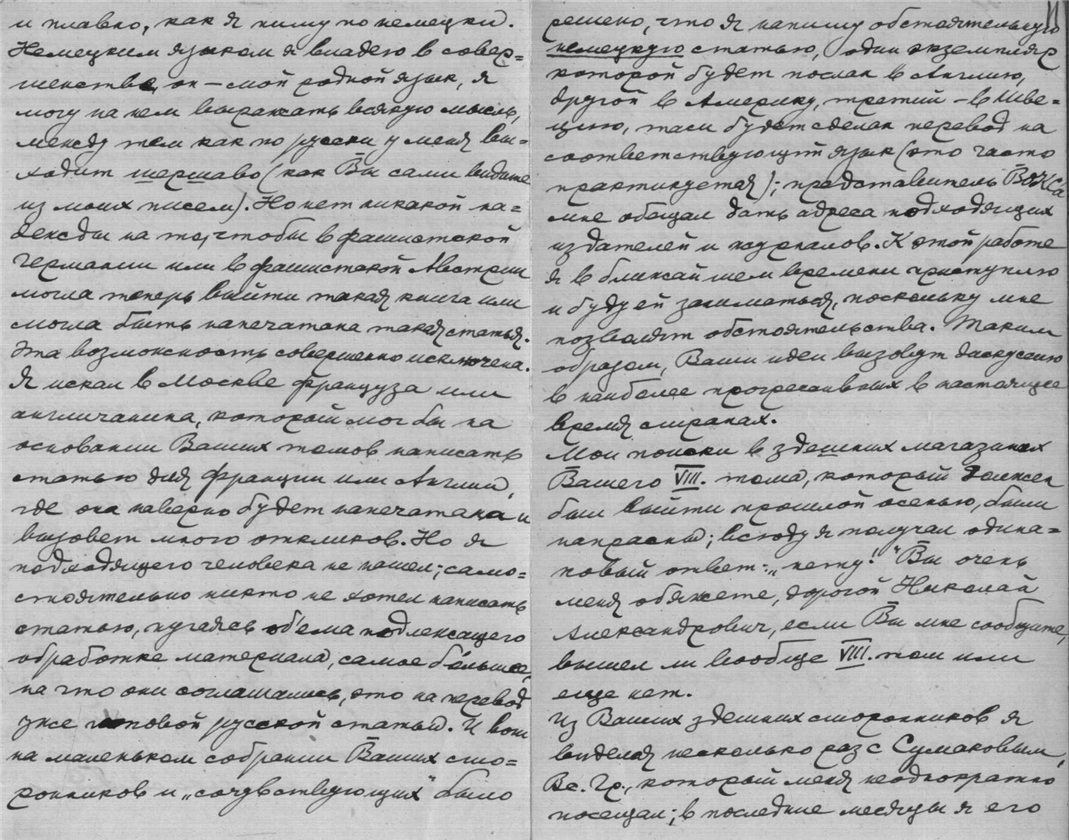 и плавно, как я пишу по немецки.
Немецким языком я владею в совер=
шенстве, он — мой родной язык, я
могу на нем выражать всякую мысль,
между тем как по русски у меня вы-
ходит шершаво (как Вы сами видите
из моих писем). Но нет никакой на=
дежды на то, чтобы в фашистской
Германии или в фашистской Австрии
могла теперь выйти такая книга или
могла быть напечатана такая статья.
Эта возможность совершенно исключена.
Я искал в Москве француза или
англичанина, который мог бы на
основании Ваших томов написать
статью для Франции или Англии,
где она наверно будет напечатана и
вызовет много откликов. Но я
подходящего человека не нашел; само=
стоятельно никто не хотел написать
статью, пугаясь об'ема подлежащего
обработке материала, самое большее,
на что они соглашались, это на перевод
уже готовой русской статьи. И вот
на маленьком собрании Ваших сто=
ронников и „сочувствующих" было
11
решено, что я напишу обстоятельную
немецкую статью, один экземпляр
которой будет послан в Англию,
другой в Америку, третий — в Шве=
цию, там будет сделан перевод на
соответствующий язык (это часто
практикуется); представитель ВОКСа
мне обещал дать адреса подходящих
издателей и журналов. К этой работе
я в ближайшем времени приступлю
и буду ей заниматься, поскольку мне
позволят обстоятельства. Таким
образом, Ваши идеи вызовут дискуссию
в наиболее прогрессивных в настоящее
время странах.
Мои поиски в здешних магазинах
Вашего VIII. тома, который должен
был выйти прошлой осенью, были
напрасны; всюду я получал одина=
ковый ответ: „нету!" Вы очень
меня обяжете, дорогой Николай
Александрович, если Вы мне сообщите,
вышел ли вообще VIII. том или
еще нет.
Из Ваших здешних сторонников я
виделся несколько раз с Сумаковым,
Вс. Гр., который меня неоднократно
посещал; в последние месяцы я его